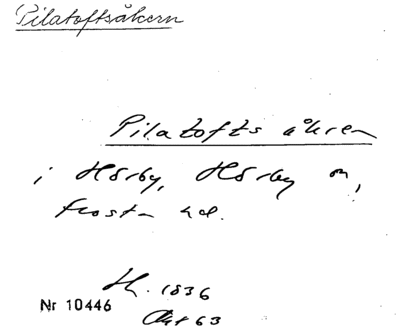 Pilatoftsåkern
Pilatofts åkren
i Hörby, Hörby sn,
Frosta hd.
H. 1836
Nr 10446
Akt 63